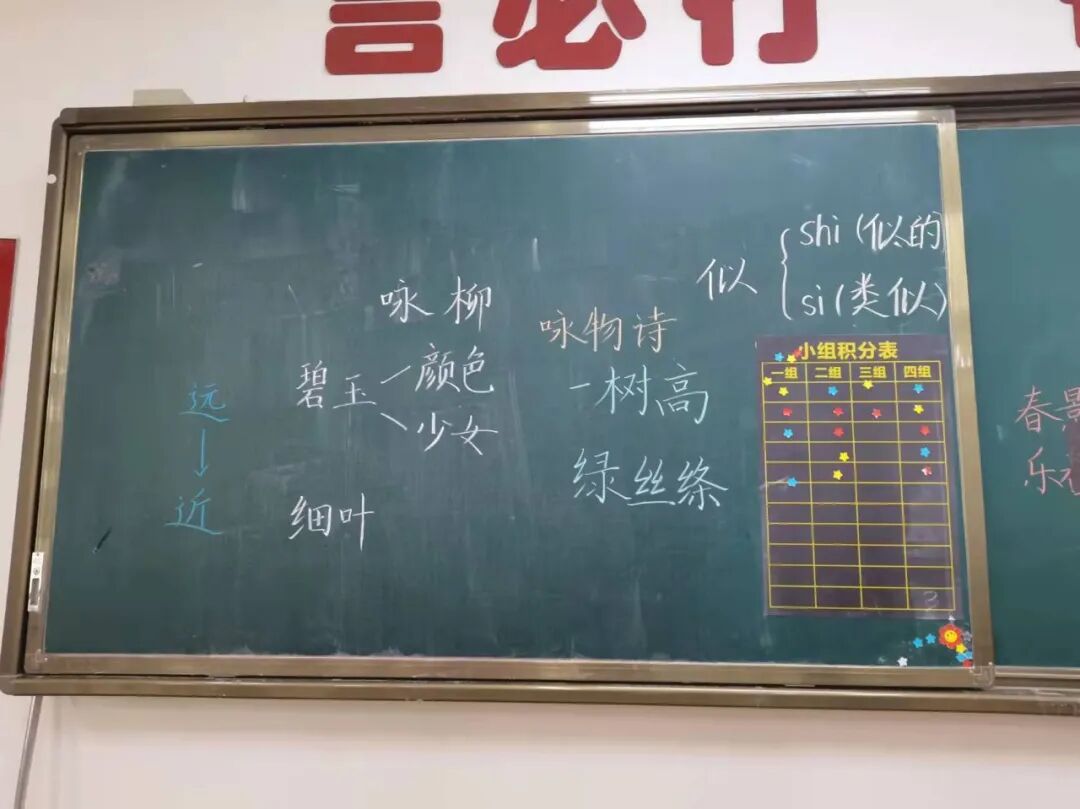 言必行
咏柳
咏物诗
似
shi(似的
si(类似)
碧玉
颜色
少女
一树高
绿丝条
远
近
细叶
小组积分表
一组 二组 三组 四组
3
春景
乐